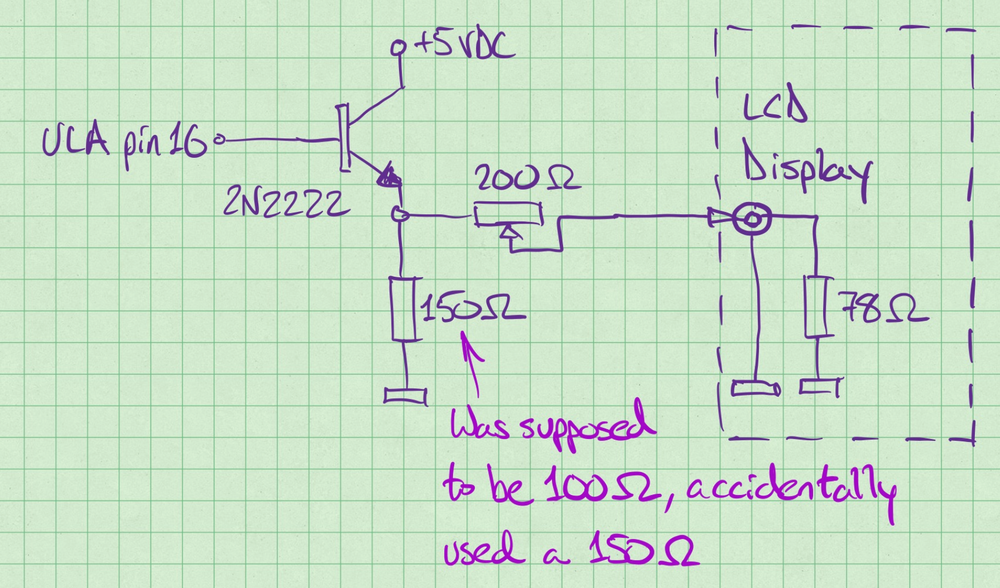 +5VDC
ULA pin16
2N2222
200Ω
LCD
Display
150Ω
78Ω
Was supposed
to be 100Ω, accidentally
used a 150Ω